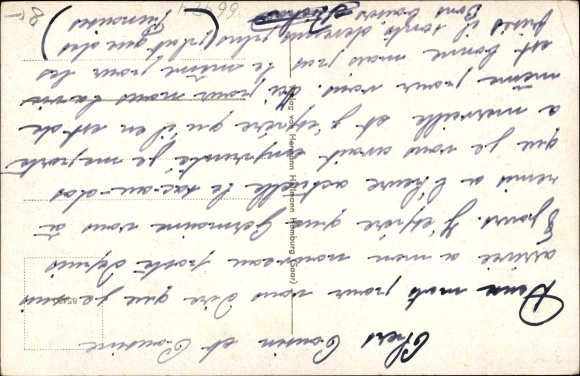 Chers Cousin et Cousine
Deux mots pour vous dire que je suis
arrivé a mon nouveau poste depuis
8 jours J'espère que Germaine vous à
remis a l'heure actuelle le sac-au-dos
que je vous avait emprunté je me porte
a merveille et j'espère qu'il en est de
même pour vous. Ici pour nous la vie
est bonne mais pas le même pour les
puis il sont devenus plus plat que des
Gros baisers
Verlag von Hermann Hellmann Homburg (Saar)